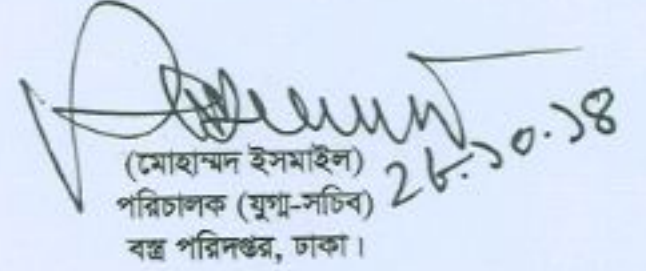 (মোহাম্মদ ইসমাইল)
পরিচালক (যুগ্ম-সচিব)
বস্ত্র পরিদপ্তর, ঢাকা।